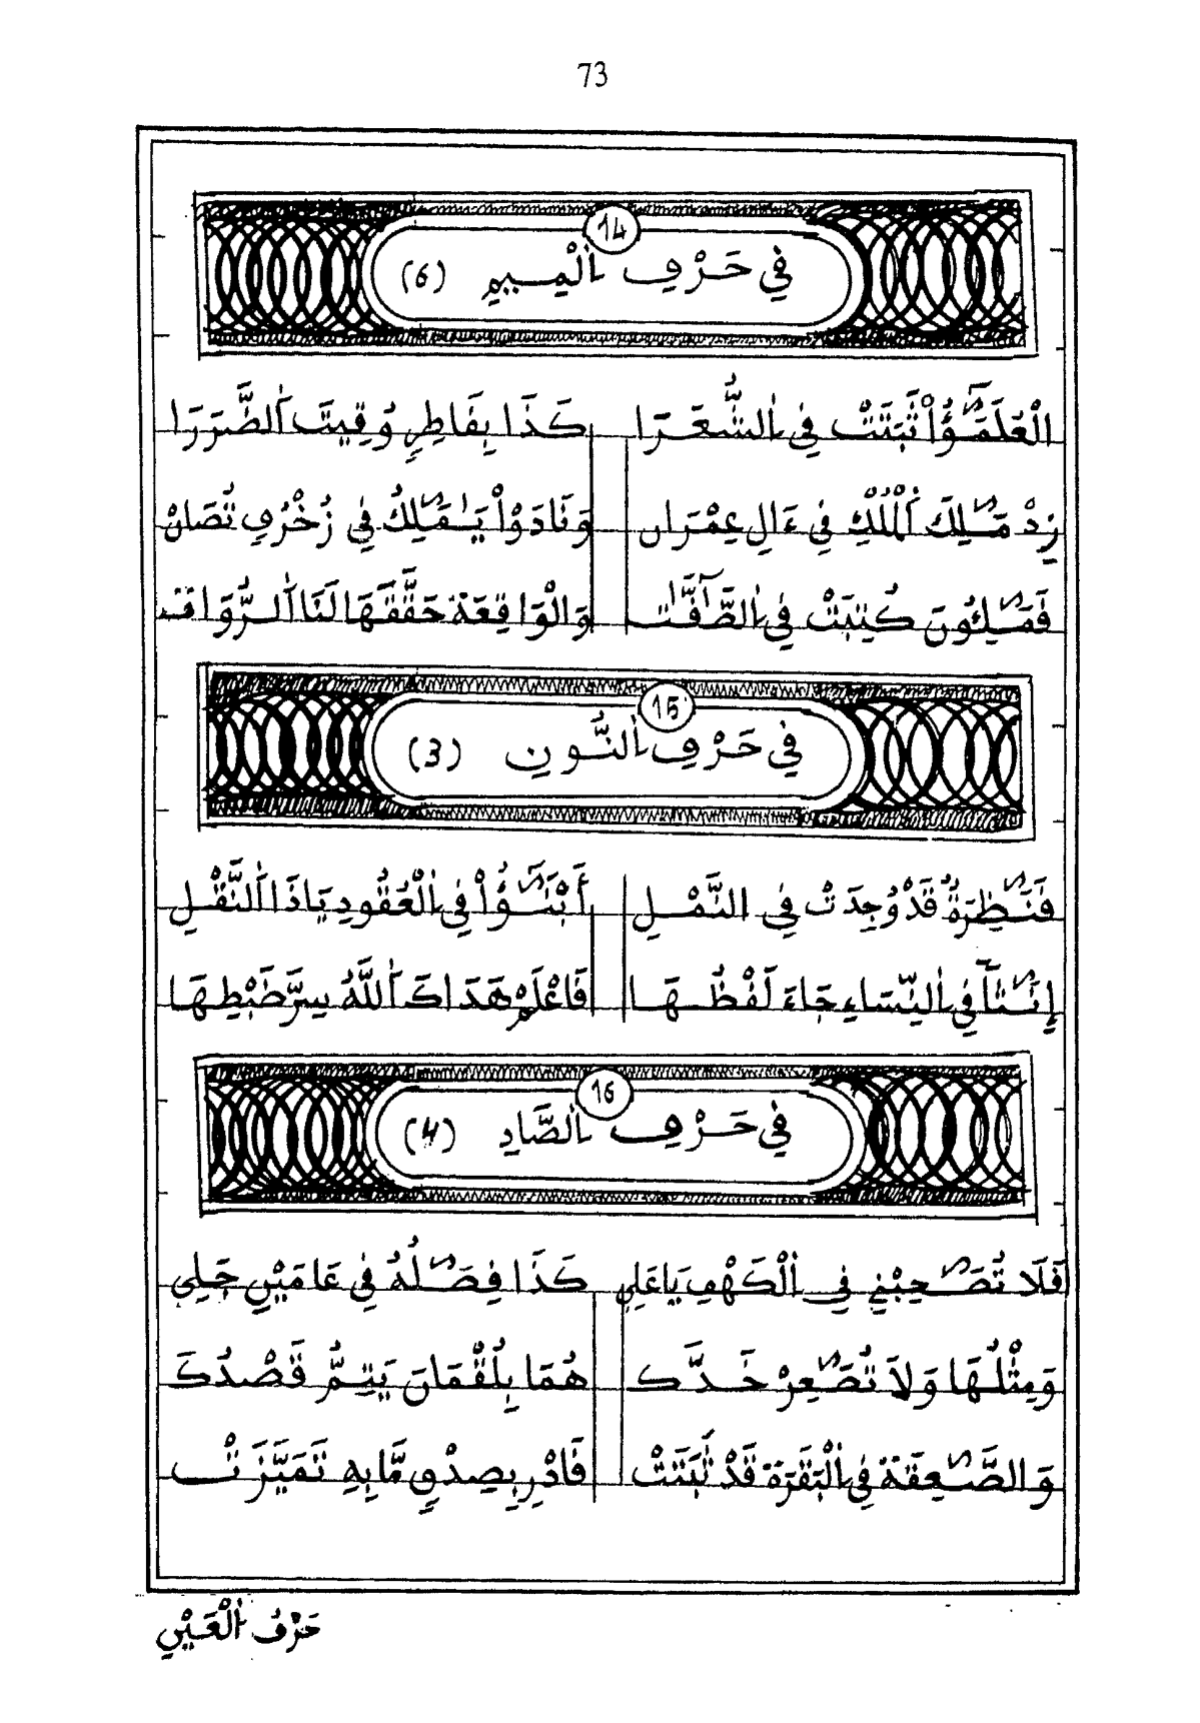 73
14
فِي حَرْفِ اَلْمِيمِ (6)
اَلْعُلَمَٰٓؤُاْ ثَبَتَتْ فِي اِلشُّعَرَا كَذَا بِفَاطِرِ وُقِيتَ اَلضَّرَرَا
زِدْ مَٰلِكَ اَلْمُلْكِ فِي ءَالِ عِمْرَان وَنَادَوْاْ يَٰمَٰلِكُ فِي زُخْرُفِ تُصَانْ
فَمَٰلِـُٔونَ كُتِبَتْ فِي اِلصَّٰٓفَّٰت وَالْوَاقِعَة حَقَّقَهَا لَنَا اَلرُّوَات
15
فِي حَرْفِ اِلنُّونِ (3)
فَنَٰظِرَةُ قَدْ وُجِدَتْ فِي النَّمْلِ أَبْنَٰٓؤُاْ فِي اِلْعُقُودِ يَاذَا اَلنَّقْلِ
إِنَٰثاً فِي اِلنِّسَاءِ جَاءَ لَفْظُهَا فَاعْلَمْ هَدَاكَ اَللَّهُ سِرَّ ضَبْطِهَا
16
فِي حَرْفِ اِلصَّادِ (4)
فَلَا تُصَٰحِبْنِي فِي اِلْكَهْفِ يَا عَلِي كَذَا فِصَٰلُهُ فِي عَامَيْنِ جَلِي
وَمِثْلُهَا وَلاَ تُصَٰعِرْ خَدَّكَ هُمَا بِلُقْمَانَ يَتِمُّ قَصْدُكَ
وَالصَّٰعِقَة فِي اِلْبَقَرَة قَدْ ثَبَتَتْ فَادْرِ بِصِدْقٍ مَّا بِهِ تَمَيَّزَتْ
حَرْفُ اَلْعَيْنِ